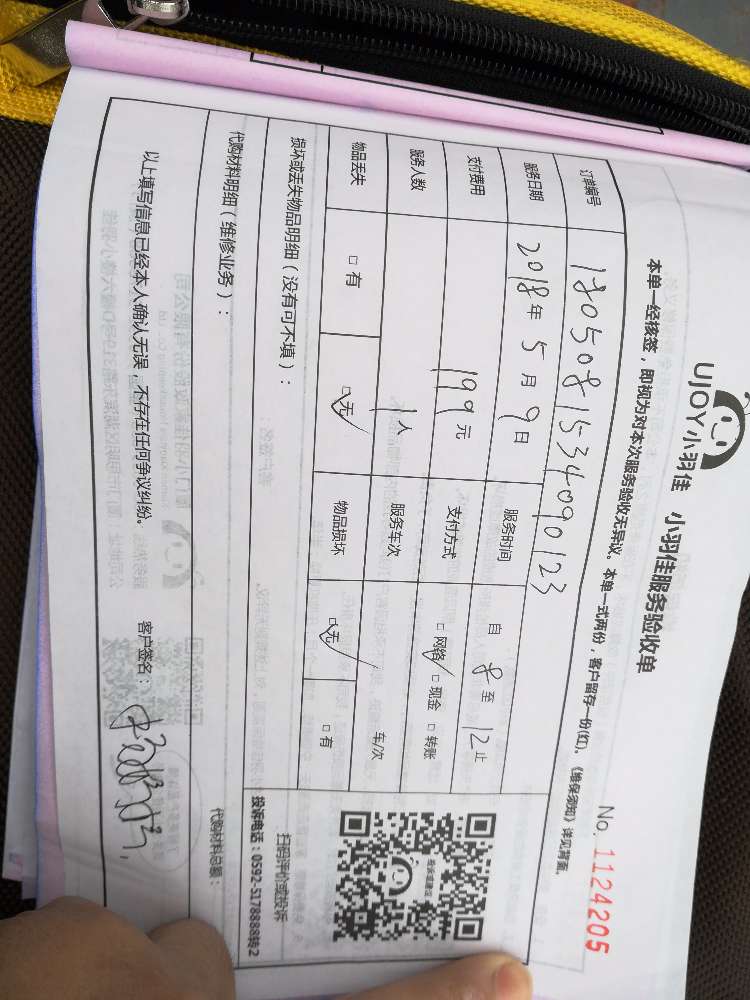 UJOY小羽佳 小羽佳服务验收单
No. 1124205
本单一经核签，即视为对本次服务验收无异议。本单一式两份，客户留存一份(红)。《维保须知》详见背面。
订单编号 1805081534090123
服务日期 2018年5月9日 服务时间 自8至12止
支付费用 199元 支付方式 □网络 □现金 □转账
服务人数 1人 服务车次 车/次
物品丢失 □有 □无 物品损坏 □无 □有
损坏或丢失物品明细（没有可不填）：
扫码评价或投诉
投诉电话：0592-5178888转2
代购材料明细（维修业务）：
代购材料总额：
以上填写信息已经本人确认无误，不存在任何争议纠纷。 客户签名：